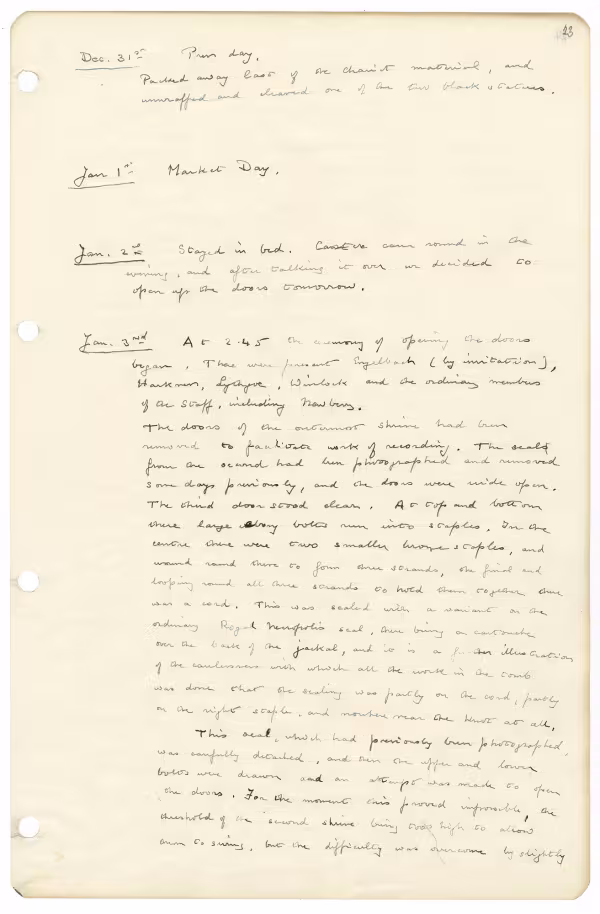 23
Dec. 31st Press day.
Packed away last of the chariot material, and
unwrapped and cleaned one of the two black statues.
Jan 1st Market Day.
Jan. 2nd Stayed in bed. Carter came round in the
evening, and after talking it over we decided to
open up the doors tomorrow.
Jan. 3rd At 2.45 the ceremony of opening the doors
began. There were present Engelbach (by invitation),
Harkness, Lythgoe, Winlock and the ordinary members
of the Staff, including Newberry.
The doors of the outermost shrine had been
removed to facilitate work of recording. The seals
from the second had been photographed and removed
some days previously, and the doors were wide open.
The third door stood clear. At top and bottom
there large ebony bolts run into staples. In the
centre there were two smaller bronze staples, and
wound round these to form three strands, the final end
looping round all three strands to hold them together there
was a cord. This was sealed with a variant on the
ordinary Royal Necropolis seal, there being a cartouche
over the back of the jackal, and it is a further illustration
of the carelessness with which all the work in the tomb
was done that the sealing was partly on the cord, partly
on the right staple, and nowhere near the knot at all.
This seal, which had previously been photographed,
was carefully detached, and then the upper and lower
bolts were drawn and an attempt was made to open
the doors. For the moment this proved impossible, the
threshold of the second shrine being too high to allow
them to swing, but the difficulty was overcome by slightly